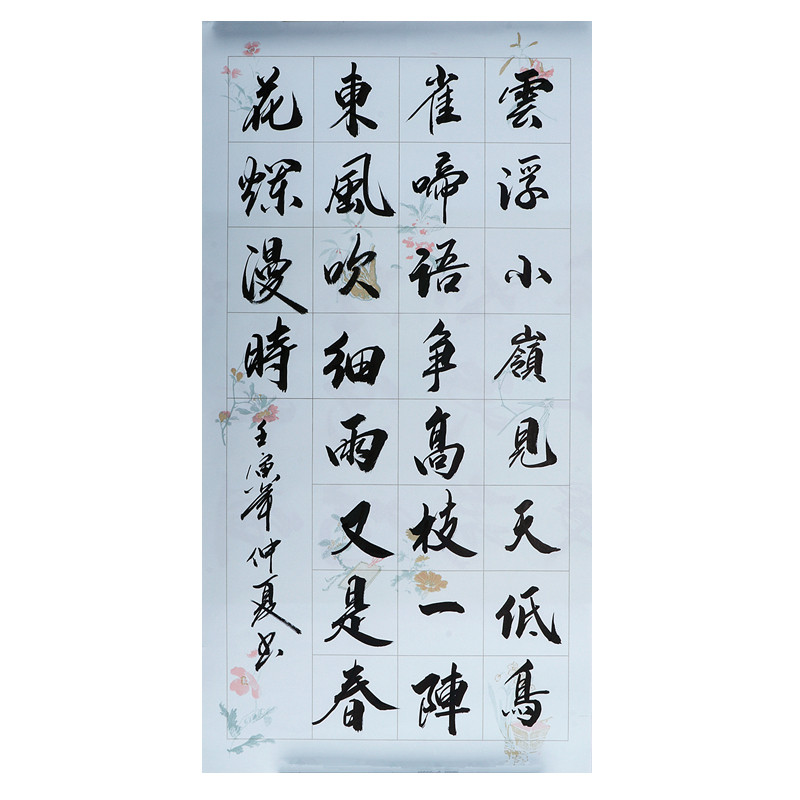 雲浮小嶺見天低鳥
雀啼语争高枝一陣
東風吹细雨又是春
花爛漫時
壬寅年仲夏书